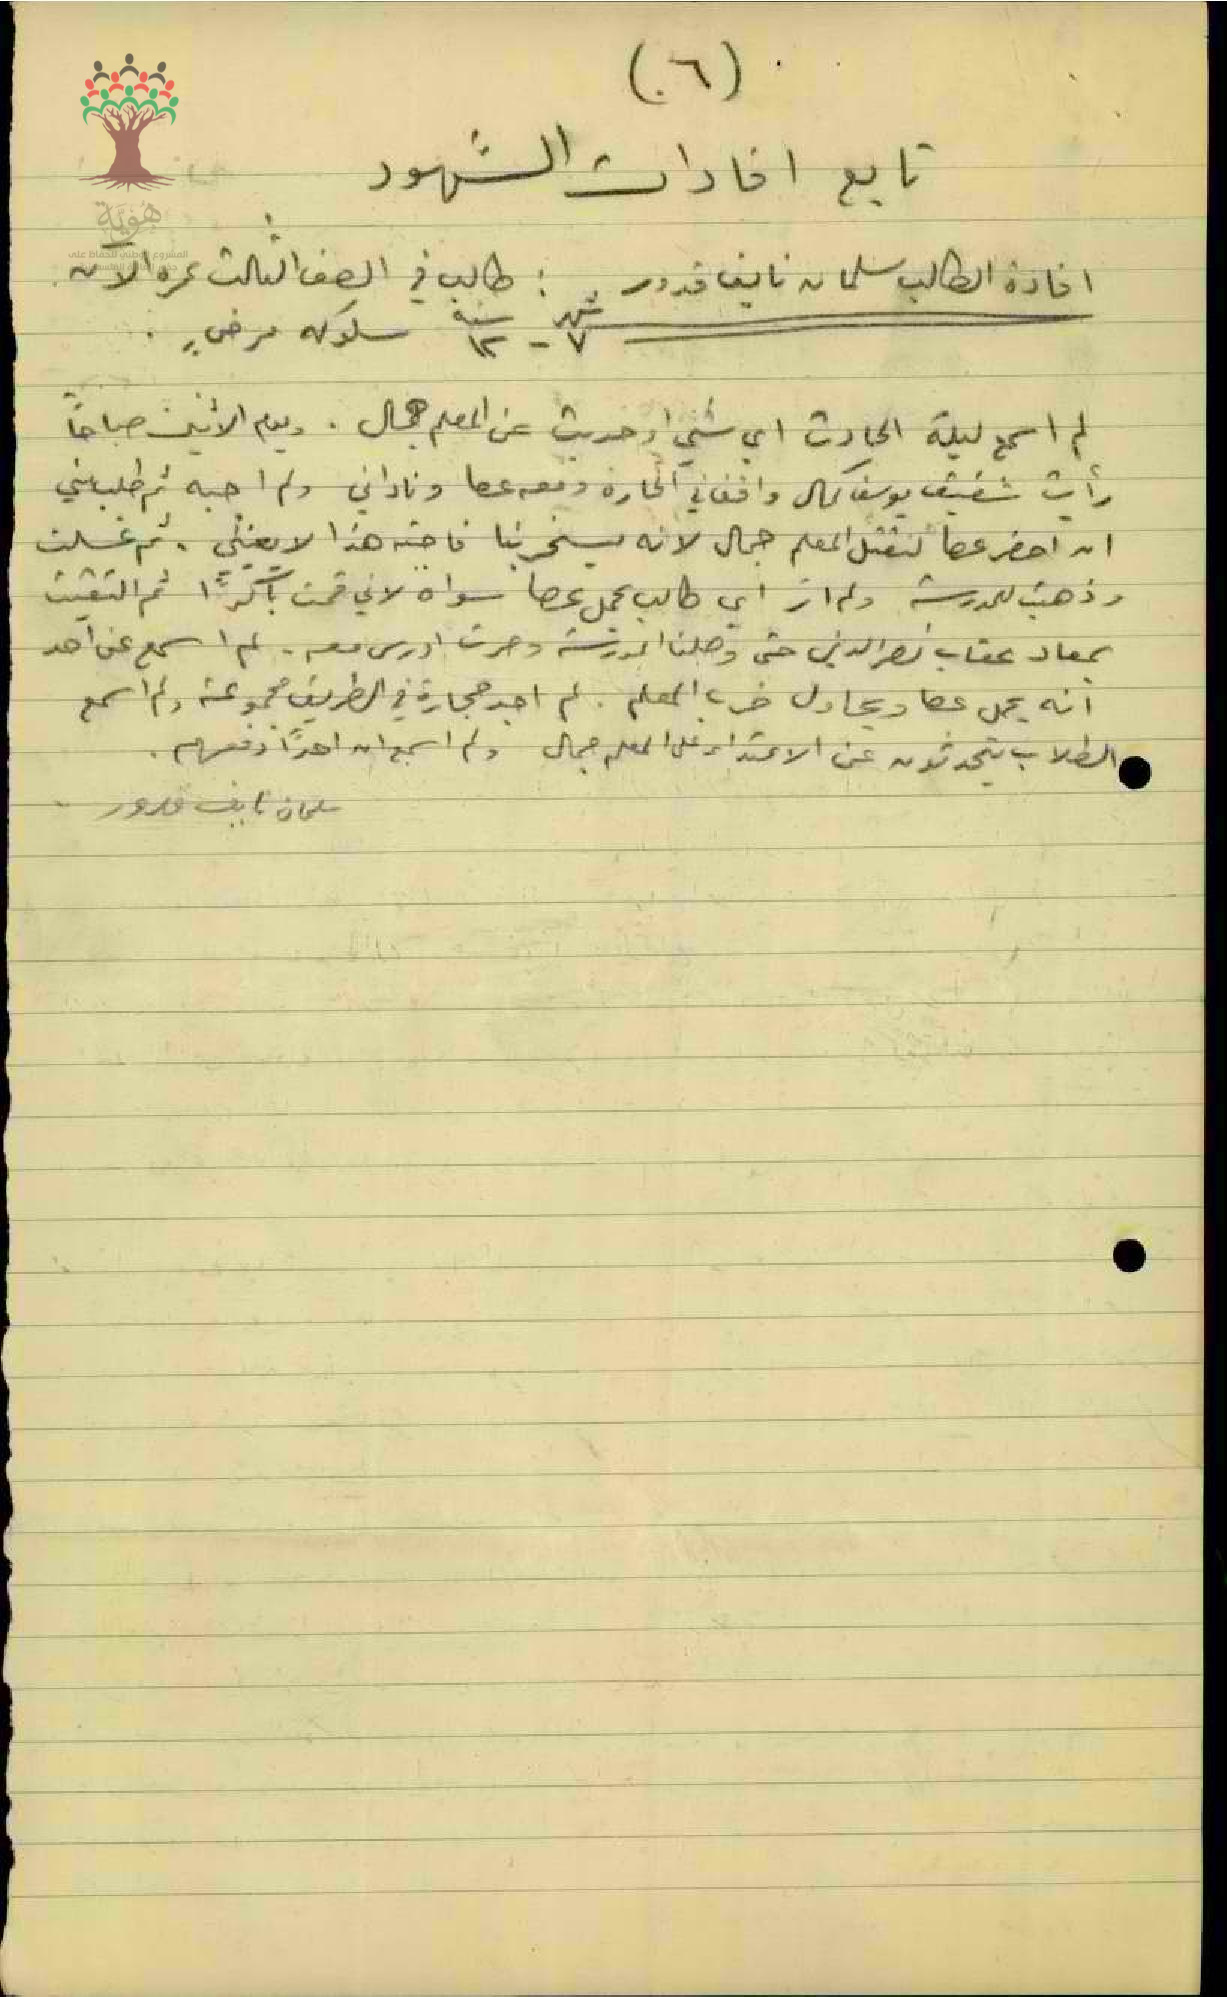 (٦)
تابع افادات الشهود
هوية
المشروع الوطني للحفاظ على
افادة الطالب سلمان نايف قدور : طالب في الصف الثالث عمره الآن
شهر ٧ - سنة ١٢ سلوكه مرضي .
لم اسمع ليلة الحادث اي شيء او حديث عن المعلم جمال . ويوم الاثنين صباحاً
رأيت شفيق يوسف كمال واقفا في الحارة ومعه عصا وناداني ولم اجبه ثم طلب مني
ان احضر عصا لنقتل المعلم جمال لانه يسخر بنا فاجبته هذا لا يعنيني . ثم غسلت
وذهبت للمدرسة ولم ار اي طالب يحمل عصا سواه لاني قمت باكرًا ثم التقيت
بمعاد عقاب نصرالدين حتى وصلنا المدرسة وصرت ادرس معه . لم اسمع عن احد
انه يحمل عصا ويحاول ضرب المعلم . لم اجد حجارة في الطريق مجموعة ولم اسمع
الطلاب يتحدثون عن الاعتداء على المعلم جمال ولم اسمع ان احدًا دفعهم .
سلمان نايف قدور